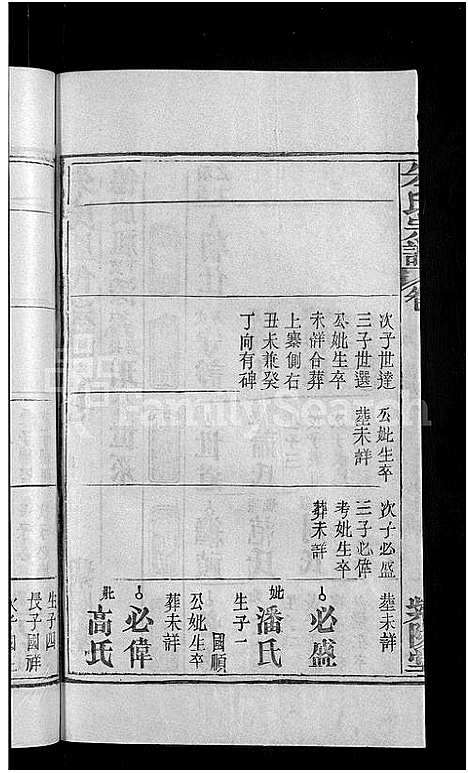 朱氏宗譜 卷
紫陽堂
次子世達
三子世選
公妣生卒
未詳合葬
上寨側右
丑未兼癸
丁向有碑
公妣生卒
塟未詳
次子必盛
三子必偉
考妣生卒
葬未詳
塟未詳
必盛
妣潘氏
生子一
國順
公妣生卒
葬未詳
必偉
妣高氏
生子四
長子國祥
FamilySearch